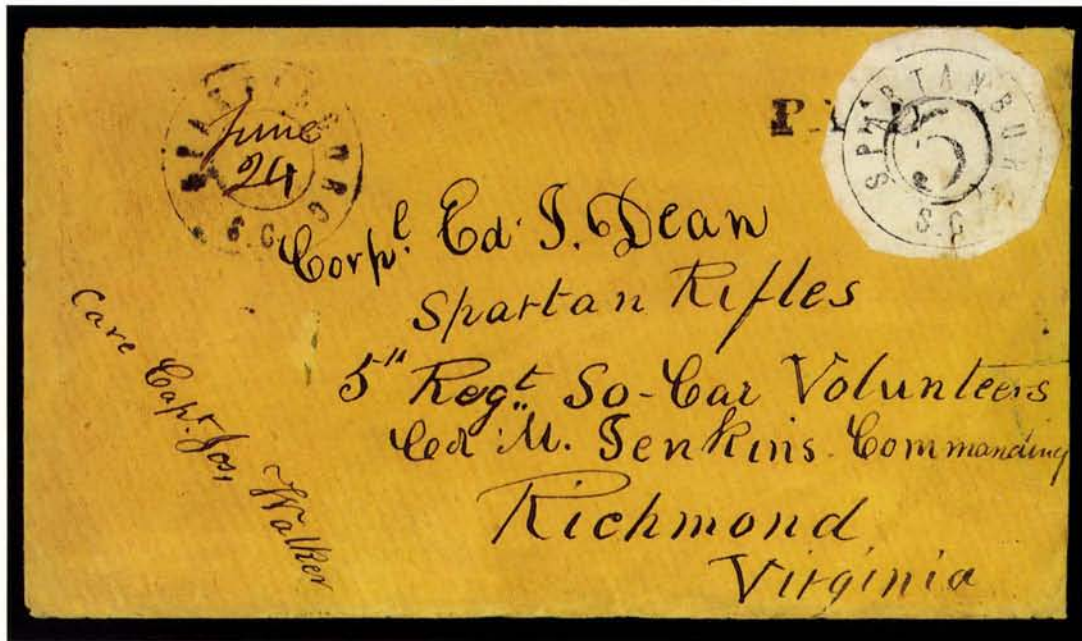 SPARTANBURG S.C.
June
24
PAI
SPARTANBUR
5
S.C
Corpl. Ed. J. Dean
Spartan Rifles
5" Regt. So-Car Volunteers
Col M. Jenkins Commanding
Richmond
Virginia
Care Capt. Jos. Walker